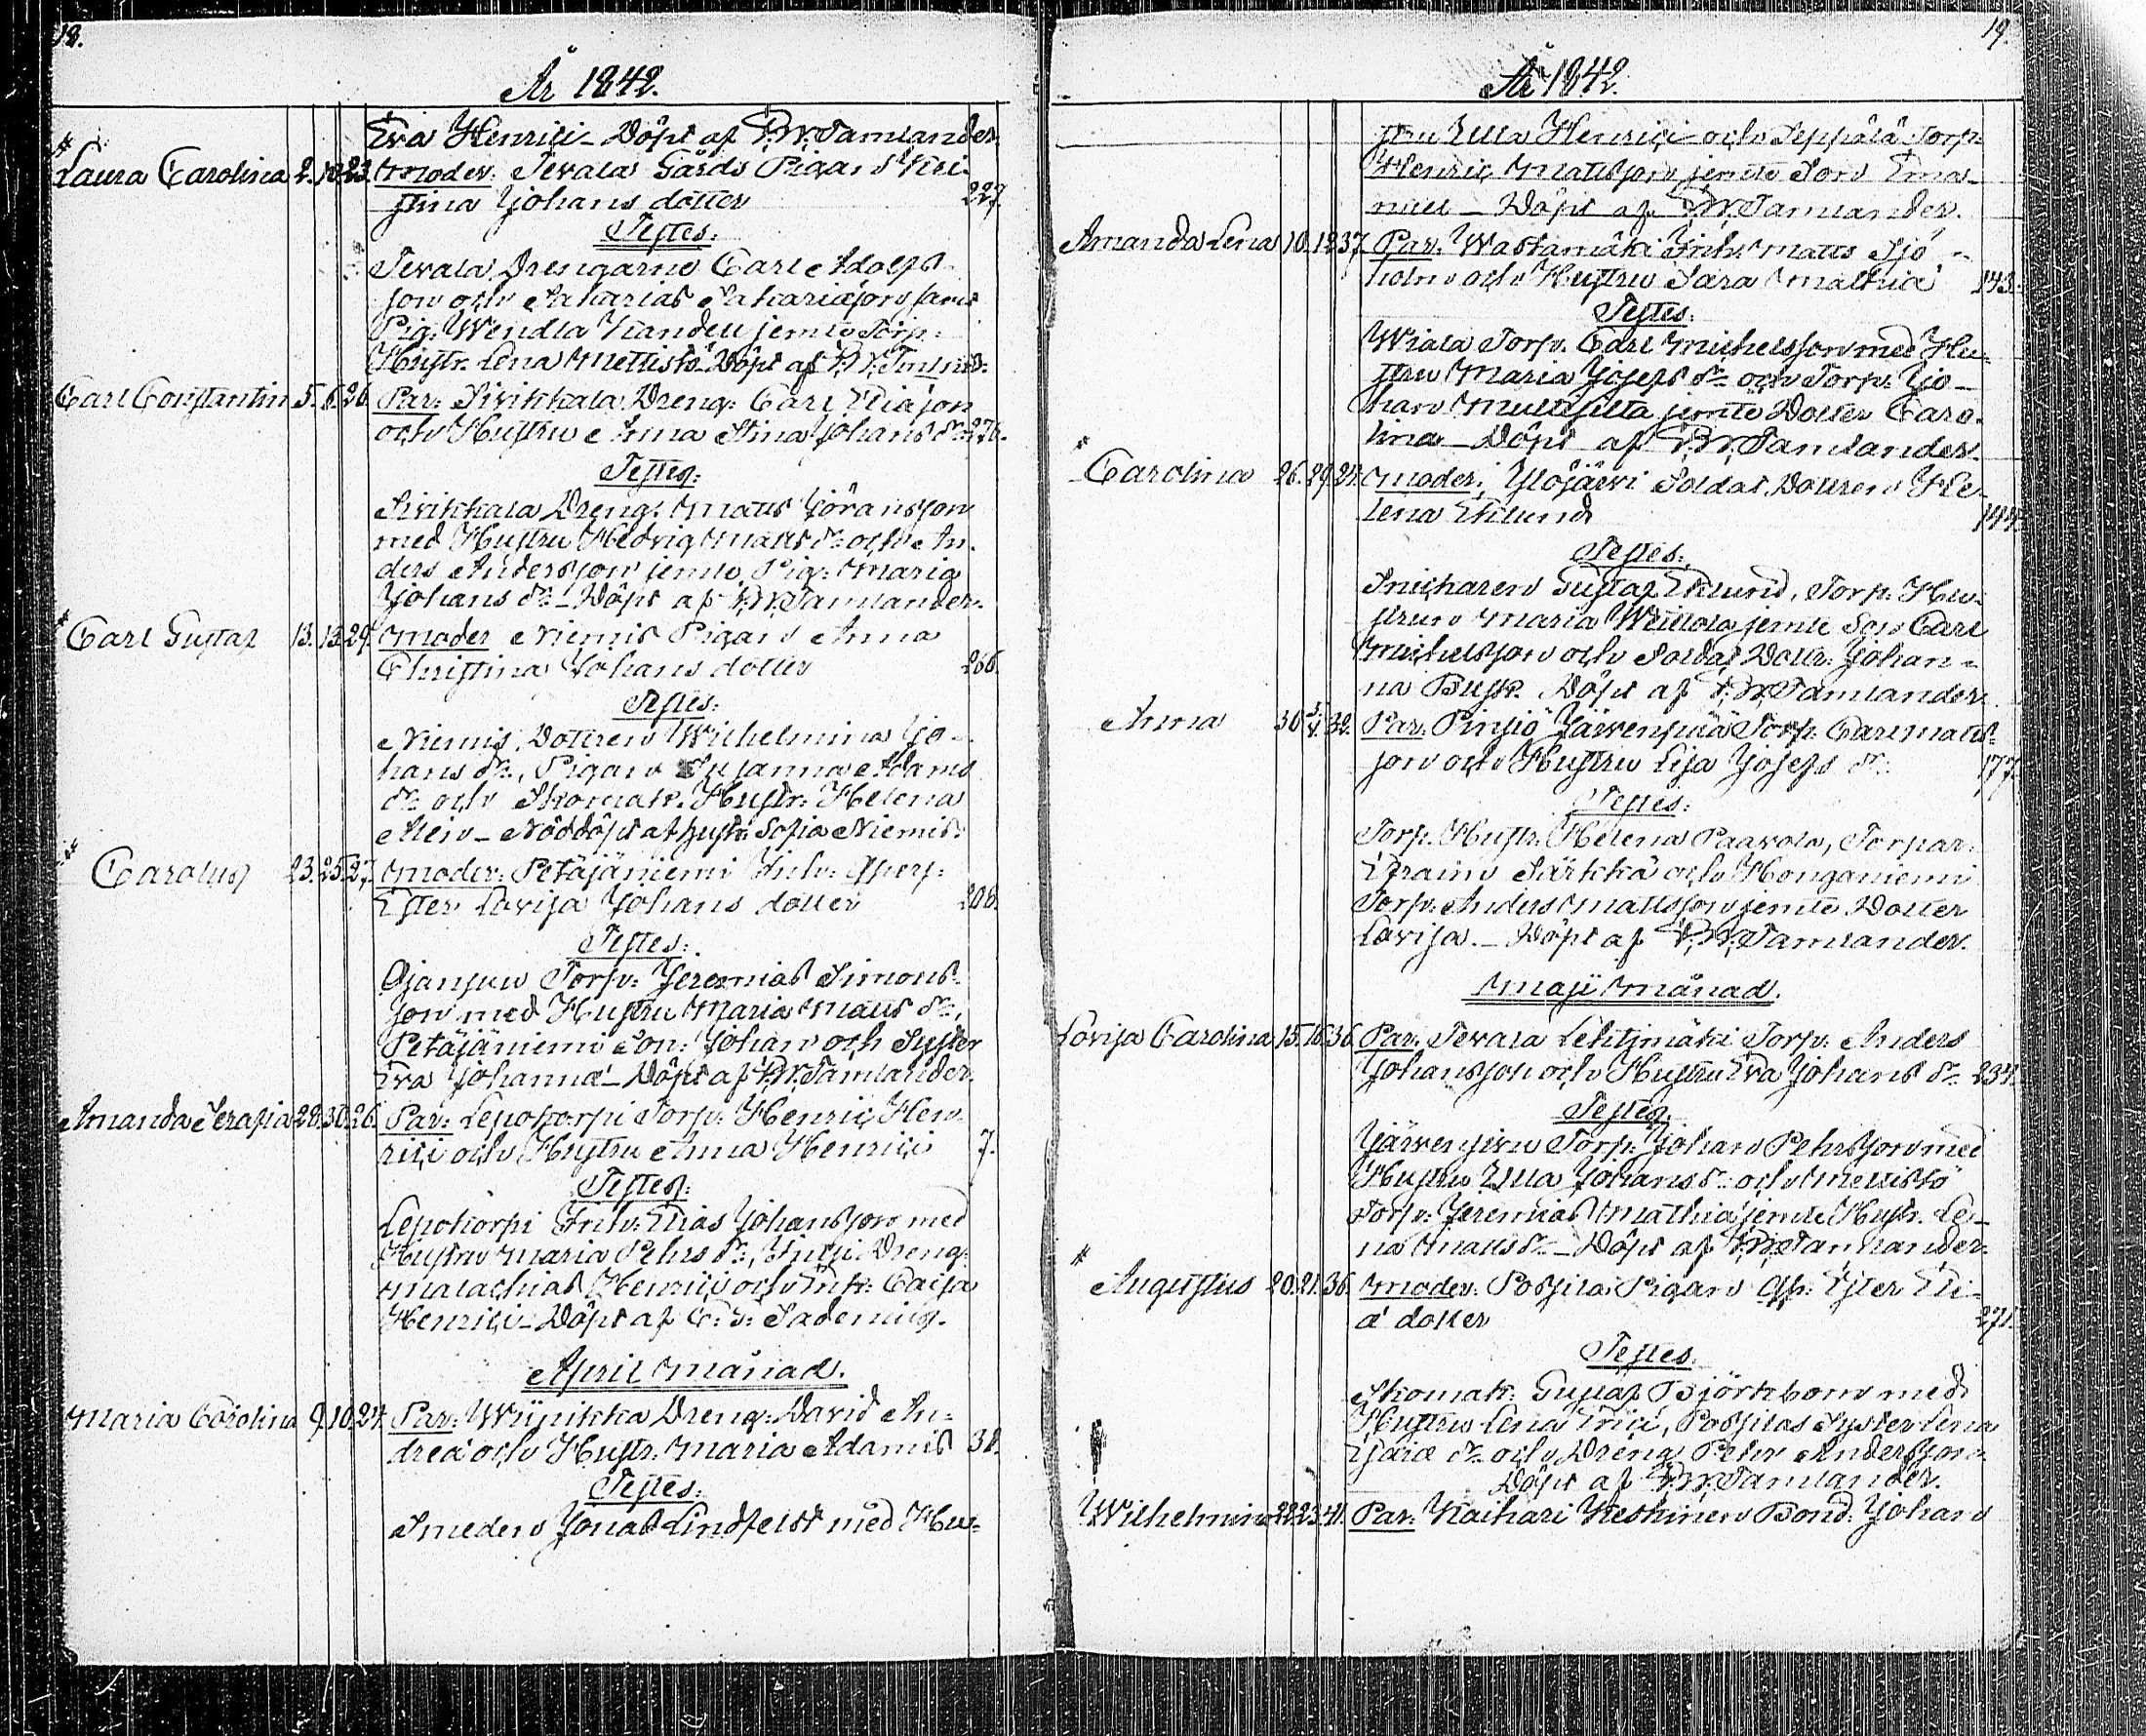 18.
År 1842.
Eva Henrici - Döpt af P.W. Tamlander.
Laura Carolina 2. 10. 23. Moder. Tevala Gårds Pigan Kri-
stina Johans dotter 227.
Testes:
Tevala Drengarne Carl Adolfs-
son och Sakarias Sakariasson samt
Pig. Wendla jemte Torp.
Hustr. Lena Mettistö. Döpt af P.W. Tmlnd.
Carl Constantin 5. 6. 26. Par: Sivikkala Dreng: Carl Eliasson
och Hustru Anna Stina Johans dr. 276.
Testes:
Sivikkala Dreng. Matts Göransson
med Hustru Hedvig Matts dr. och An-
ders Andersson jemte Pig: Maria
Johans dr. - Döpt af P.W. Tamlander.
Carl Gustaf 13. 13. 29. Moder Niemis Pigan Anna
Christina Johans dotter 266.
Testes:
Niemis Dottren Wilhelmina Jo-
hans dr., Pigan Susanna Adams
dr. och Skomak. Hustr. Helena
- Nöddöpt af hustr. Sofia Niemis.
Carolus 23. 25. 27. Moder: Petäjäniemi Inhv:
Ester Lovisa Johans dotter 208.
Testes:
Ojansuu Torp: Jeremias Simons-
son med Hustru Maria Matts dr.,
Petäjäniemi Son: Johan och Syster
Eva Johanna - Döpt af P.W. Tamlander.
Amanda Serafia 28. 30. 26. Par: Lepokorpi Torp: Henric Hen-
rici och Hustru Anna Henrici 7.
Testes:
Lepokorpi Inhv: Elias Johansson med
Hustru Maria Pehrs dr., Dreng:
Malachias Henrici och Caisa
Henrici - Döpt af
April Månad.
Maria Carolina 9. 10. 24. Par: Wiinikka Dreng: David An-
dreæ och Hustr. Maria Adamis 38.
Testes:
Smeden Jonas Lindfelst med Hu-
19.
År 1842.
stru Ulla Henrici och Seppälä Torp:
Henric Mattsson jemte Son Ema-
nuel - Döpt af P.W. Tamlander.
Amanda Lena 10. 12. 37. Par: Wastamäki Inhv. Matts Sjö-
holm och Hustru Sara Mathiæ 143.
Testes:
Wiala Torp. Carl Michelsson med Hu-
stru Maria Josefs dr. och Torp. Jo-
han Multisilta jemte Dotter Caro-
lina - Döpt af P.W. Tamlander.
Carolina 26. 29. 24. Moder: Ylöjärvi Soldat Dottren He-
lena Eklund 144.
Testes:
Snickaren Gustaf Eklund, Torp: Hu-
strun Maria jemte Son Carl
Michelsson och Soldat Dottr. Johan-
na Busk. Döpt af P.W. Tamlander.
Anna 30. 3/4. 32. Par: Pinsiö Järvenpää Torp: Carl Matts-
son och Hustru Lisa Josefs dr. 177.
Testes:
Torp. Hustr. Helena Paavola, Torpar.
Efraim Särkkä och Honganiemi
Torp. Anders Mattsson jemte Dotter
Lovisa. - Döpt af P.W. Tamlander.
Maji Månad.
Lovisa Carolina 15. 16. 36. Par. Tevala Lehtimäki Torp: Anders
Johansson och Hustru Eva Johans dr. 234.
Testes.
Järvensivu Torp: Johan Pehrsson med
Hustru Ulla Johans dr. och Mettistö
Torp: Jeremias Mathiæ jemte Hustr. Le-
na Matts dr. - Döpt af P.W. Tamlander.
Augustus 20. 21. 36. Moder: Possila Pigan Ester Eli-
æ dotter 271.
Testes.
Skomak: Gustaf Björkbom med
Hustru Lena Possilas Syster Lena
dr. och Dreng Petter Andersson.
Döpt af P.W. Tamlander.
Wilhelmina 22. 23. 41. Par: Kaihari Keskinen Bond: Johan